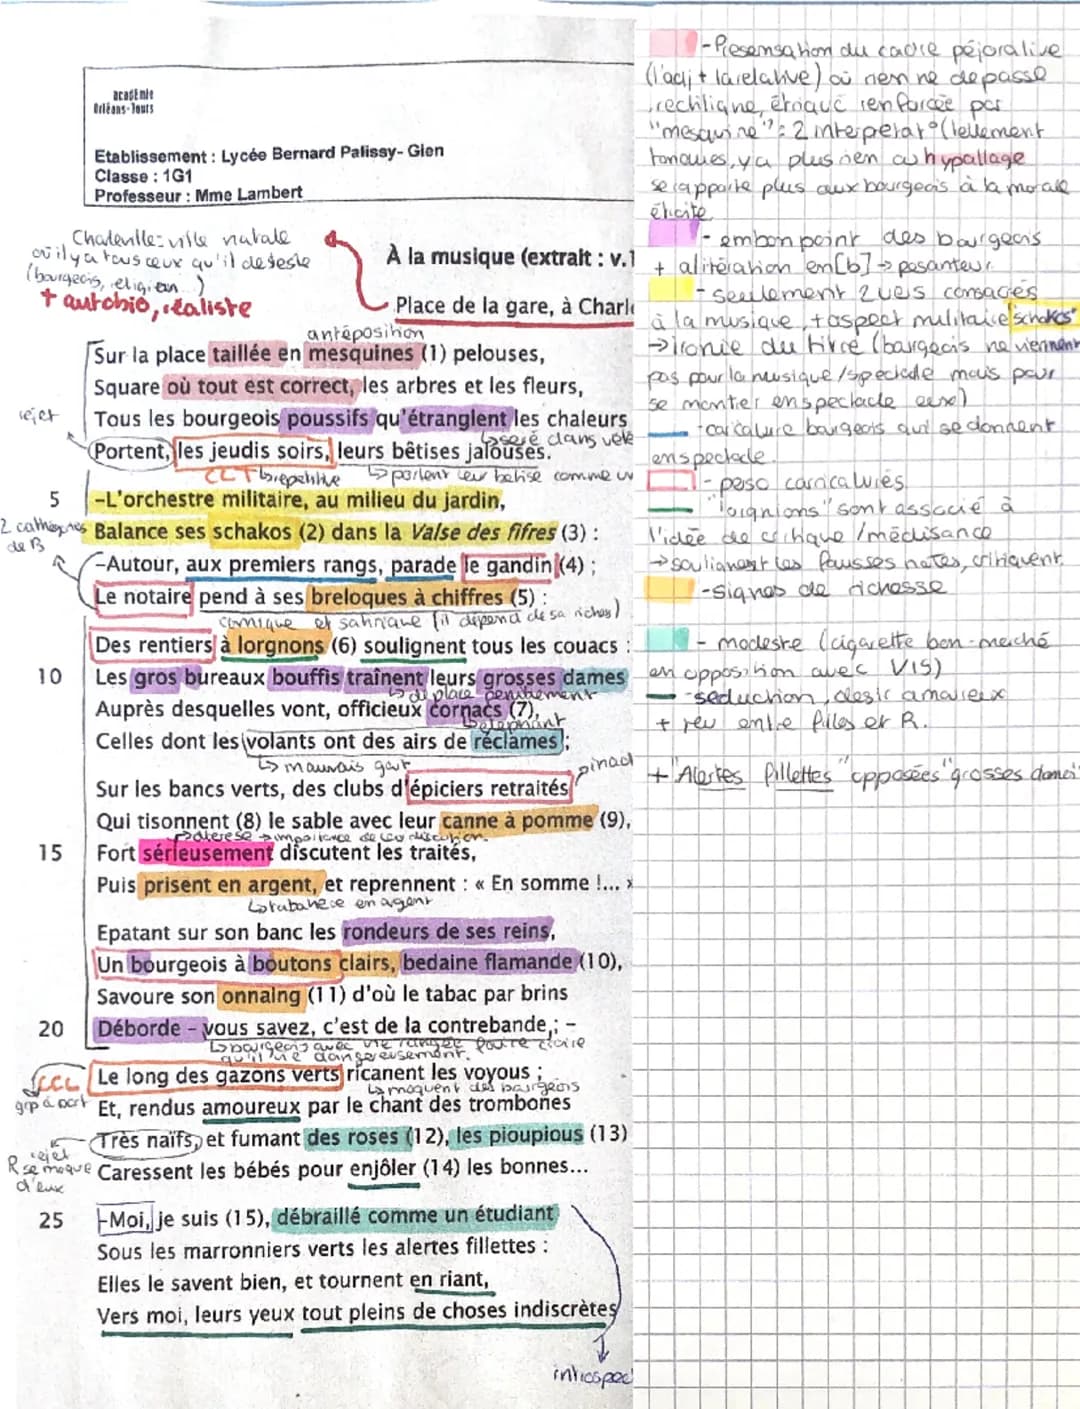 académie
Orléans-Tours
Etablissement : Lycée Bernard Palissy- Gien
Classe : 1G1
Professeur : Mme Lambert
Charleville = ville natale
où il y a tous ceux qu'il déteste
(bourgeois, religieux...)
+ autobio, réaliste
À la musique (extrait : v.1
Place de la gare, à Charle
antéposition
Sur la place taillée en mesquines (1) pelouses,
Square où tout est correct, les arbres et les fleurs,
rejet
Tous les bourgeois poussifs qu'étranglent les chaleurs
↳ serré dans vête
Portent, les jeudis soirs, leurs bêtises jalouses.
CCT ↳ répétitive ↳ portent leur bêtise comme un
5 -L'orchestre militaire, au milieu du jardin,
2 catégories
de B
Balance ses schakos (2) dans la Valse des fifres (3) :
-Autour, aux premiers rangs, parade le gandin (4) ;
Le notaire pend à ses breloques à chiffres (5) :
comique et satirique (il dépend de sa riches)
Des rentiers à lorgnons (6) soulignent tous les couacs :
10 Les gros bureaux bouffis traînent leurs grosses dames
↳ déplace péniblement
Auprès desquelles vont, officieux cornacs (7),
↳ éléphant
Celles dont les volants ont des airs de réclames ;
↳ mauvais goût
pinad
Sur les bancs verts, des clubs d'épiciers retraités
Qui tisonnent (8) le sable avec leur canne à pomme (9),
↳ diérèse → importance de la discution.
15 Fort sérieusement discutent les traités,
Puis prisent en argent, et reprennent : « En somme !... »
↳ en argent
Epatant sur son banc les rondeurs de ses reins,
Un bourgeois à boutons clairs, bedaine flamande (10),
Savoure son onnaing (11) d'où le tabac par brins
20 Déborde – vous savez, c'est de la contrebande,; -
↳ bourgeois avec vie rangée faire croire
qu'il vie dangereusement.
CCL
grp à part
Le long des gazons verts ricanent les voyous ;
↳ moquent des bourgeois
Et, rendus amoureux par le chant des trombones
Très naïfs, et fumant des roses (12), les pioupious (13)
rejet
R se moque
d'eux
Caressent les bébés pour enjôler (14) les bonnes...
25 -Moi, je suis (15), débraillé comme un étudiant
Sous les marronniers verts les alertes fillettes :
Elles le savent bien, et tournent en riant,
Vers moi, leurs yeux tout pleins de choses indiscrètes
introspec
- Présensation du cadre péjorative
(l'adj + la relative) où rien ne dépasse
rectiligne, étriqué renforcée par
"mesquine" : 2 interpretat° (tellement
tondues, y a plus rien ou hypallage
se rapporte plus aux bourgeois à la morale
étriqué
- embonpoint des bourgeois
+ alitération en [b] → pesanteur.
- seulement 2 vers consacrés
à la musique, + aspect militaire "schakos"
→ ironie du titre (bourgeois ne viennent
pas pour la musique/spectacle mais pour
se montrer en spectacle eux)
- caricature bourgeois qui se donnent
en spectacle.
- perso caricaturés
- "lorgnions" sont associé à
l'idée de critique / médisance
→ soulignent les fausses notes, critiquent
- signes de richesse
- modeste (cigarette bon-marché
en opposition avec V19)
- séduction, désir amoureux
+ jeu entre filles et R.
+ "Alertes fillettes" opposées "grosses dames"